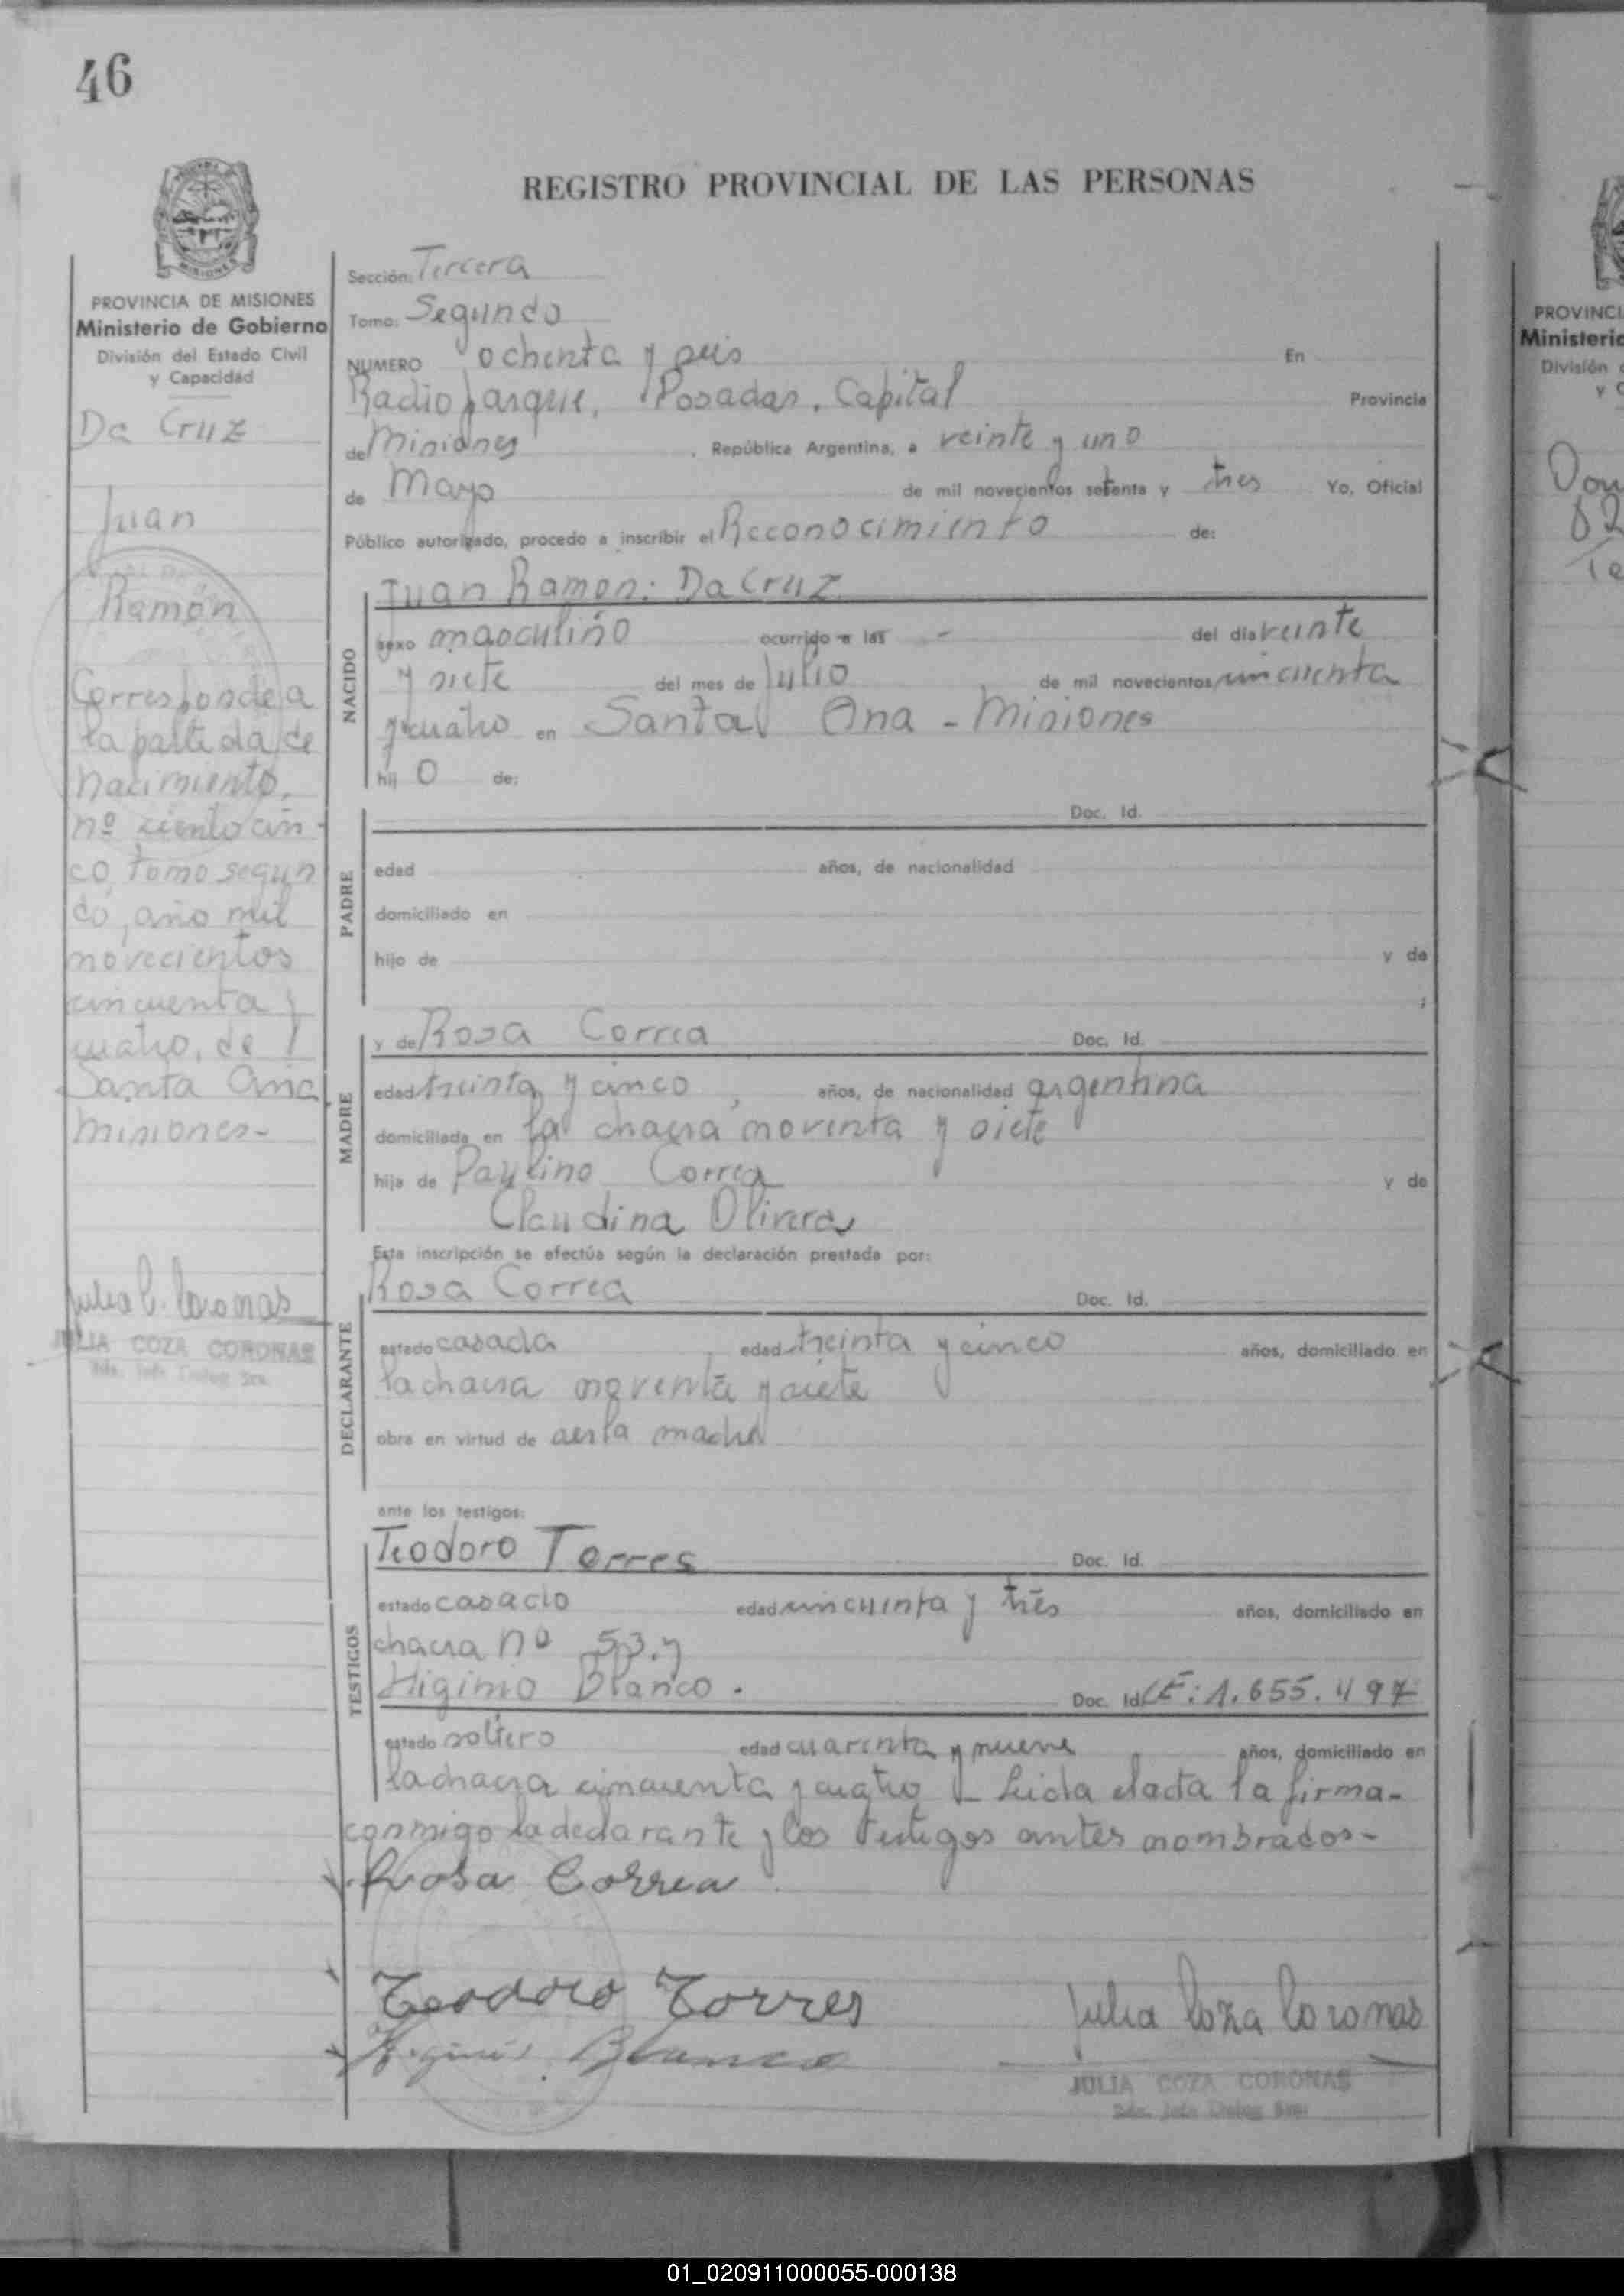 46
REGISTRO PROVINCIAL DE LAS PERSONAS
PROVINCIA DE MISIONES
Ministerio de Gobierno
División del Estado Civil
y Capacidad
Da Cruz
Juan
Ramón
Corresponde a
la partida de
nacimiento,
nº ciento cin-
co, tomo segun
do, año mil
novecientos
cincuenta y
cuatro, de
Santa Ana
Misiones-
Julia C. Coronas
JULIA COZA CORONAS
Sección: Tercera
Tomo: Segundo
NUMERO ochenta y seis En
Radio parque, Posadas, Capital Provincia
de Misiones, República Argentina, a veinte y uno
de Mayo de mil novecientos setenta y tres Yo, Oficial
Público autorizado, procedo a inscribir el Reconocimiento de:
NACIDO
Juan Ramon: Da Cruz
sexo masculino ocurrido a las - del día veinte
y siete del mes de Julio de mil novecientos cincuenta
y cuatro en Santa Ana - Misiones
hij o de:
PADRE
Doc. Id.
edad años, de nacionalidad
domiciliado en
hijo de y de
;
MADRE
y de Rosa Correa Doc. Id.
edad treinta y cinco, años, de nacionalidad argentina
domiciliada en la chacra noventa y siete
hija de Paulino Correa y de
Claudina Olivera
Esta inscripción se efectúa según la declaración prestada por:
DECLARANTE
Rosa Correa Doc. Id.
estado casada edad treinta y cinco años, domiciliado en
la chacra noventa y siete
obra en virtud de ser la madre
ante los testigos:
TESTIGOS
Teodoro Torres Doc. Id.
estado casado edad cincuenta y tres años, domiciliado en
chacra nº 53. y
Higinio Blanco. Doc. Id. LE: 1.655.497
estado soltero edad cuarenta y nueve años, domiciliado en
la chacra cincuenta y cuatro - Leida el acta la firma-
conmigo la declarante y los testigos antes nombrados-
Rosa Correa
Teodoro Torres
Higinio Blanco
Julia Coza Coronas
JULIA COZA CORONAS
PROVINCI
Ministerio
División
y C
01_020911000055-000138